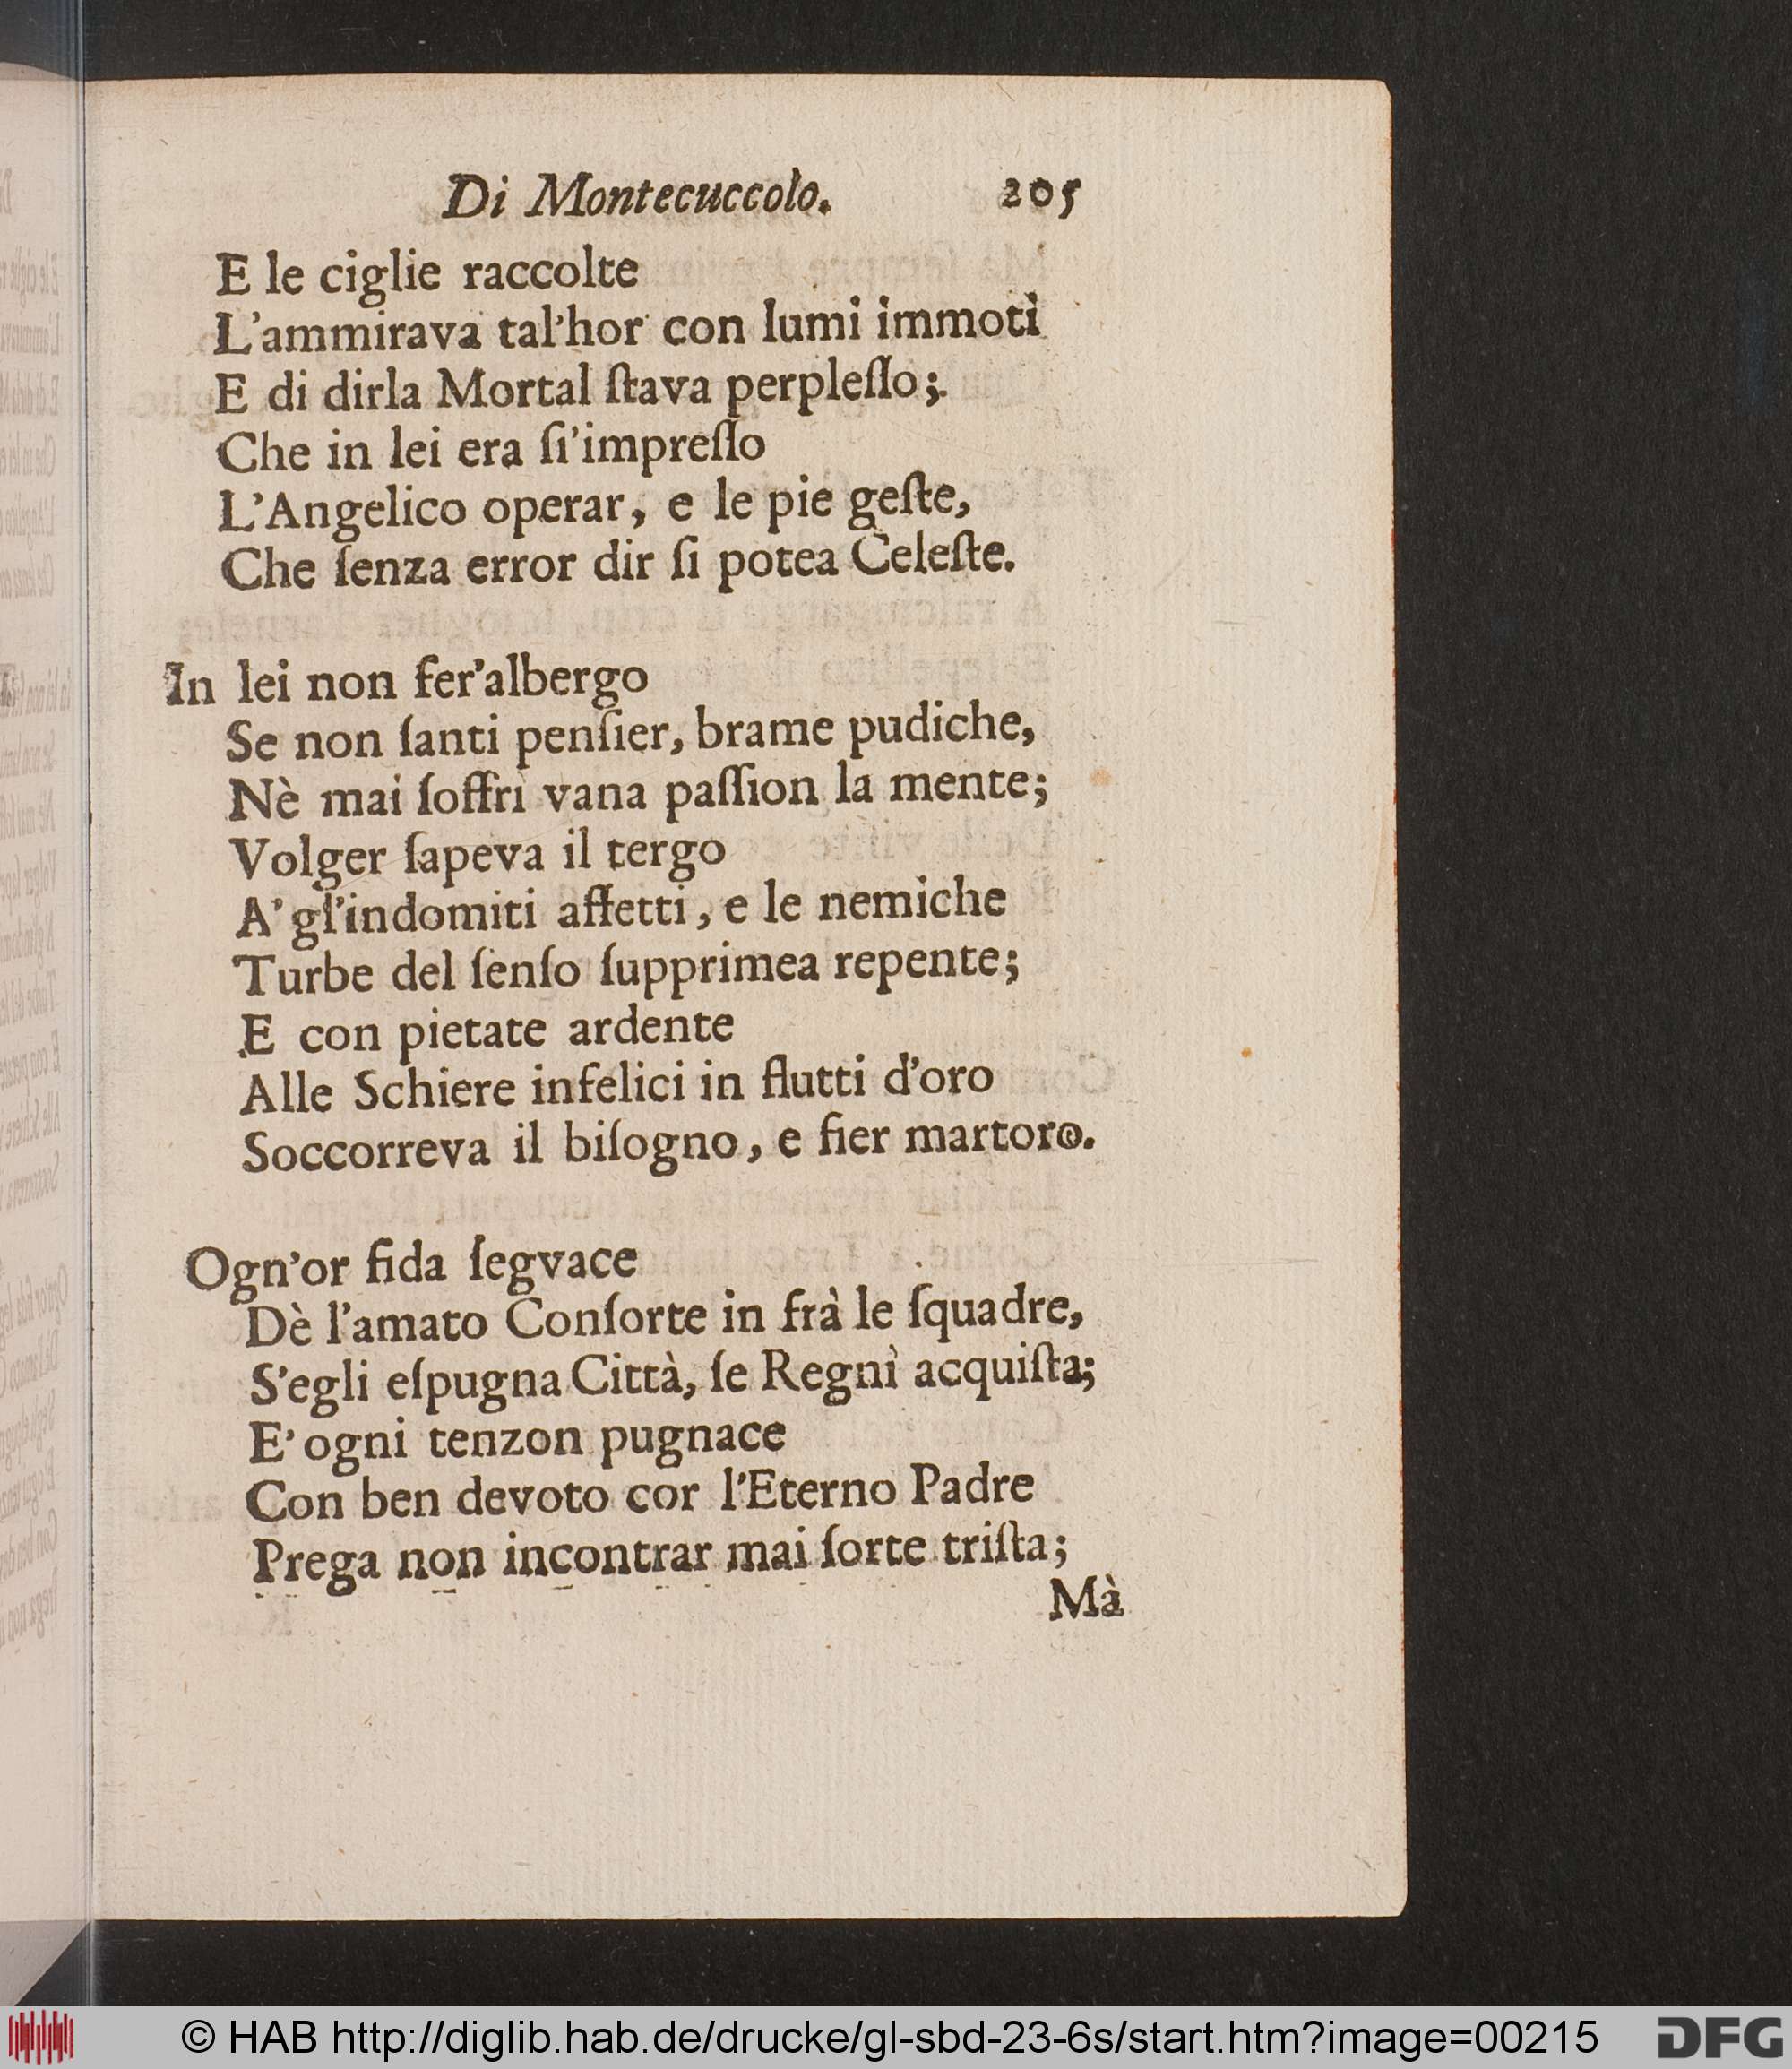 Di Montecuccolo. 205
E le ciglie raccolte
L'ammirava tal'hor con lumi immoti
E di dirla Mortal ſtava perpleſſo;
Che in lei era ſi'impreſſo
L'Angelico operar, e le pie geſte,
Che ſenza error dir ſi potea Celeſte.
In lei non fer'albergo
Se non ſanti penſier, brame pudiche,
Nè mai ſoffrì vana paſſion la mente;
Volger ſapeva il tergo
A' gl'indomiti affetti, e le nemiche
Turbe del ſenſo ſupprimea repente;
E con pietate ardente
Alle Schiere infelici in flutti d'oro
Soccorreva il biſogno, e fier martoro.
Ogn'or fida ſegvace
Dè l'amato Conſorte in frà le ſquadre,
S'egli eſpugna Città, ſe Regni acquiſta;
E' ogni tenzon pugnace
Con ben devoto cor l'Eterno Padre
Prega non incontrar mai ſorte triſta;
Mà
© HAB http://diglib.hab.de/drucke/gl-sbd-23-6s/start.htm?image=00215
DFG